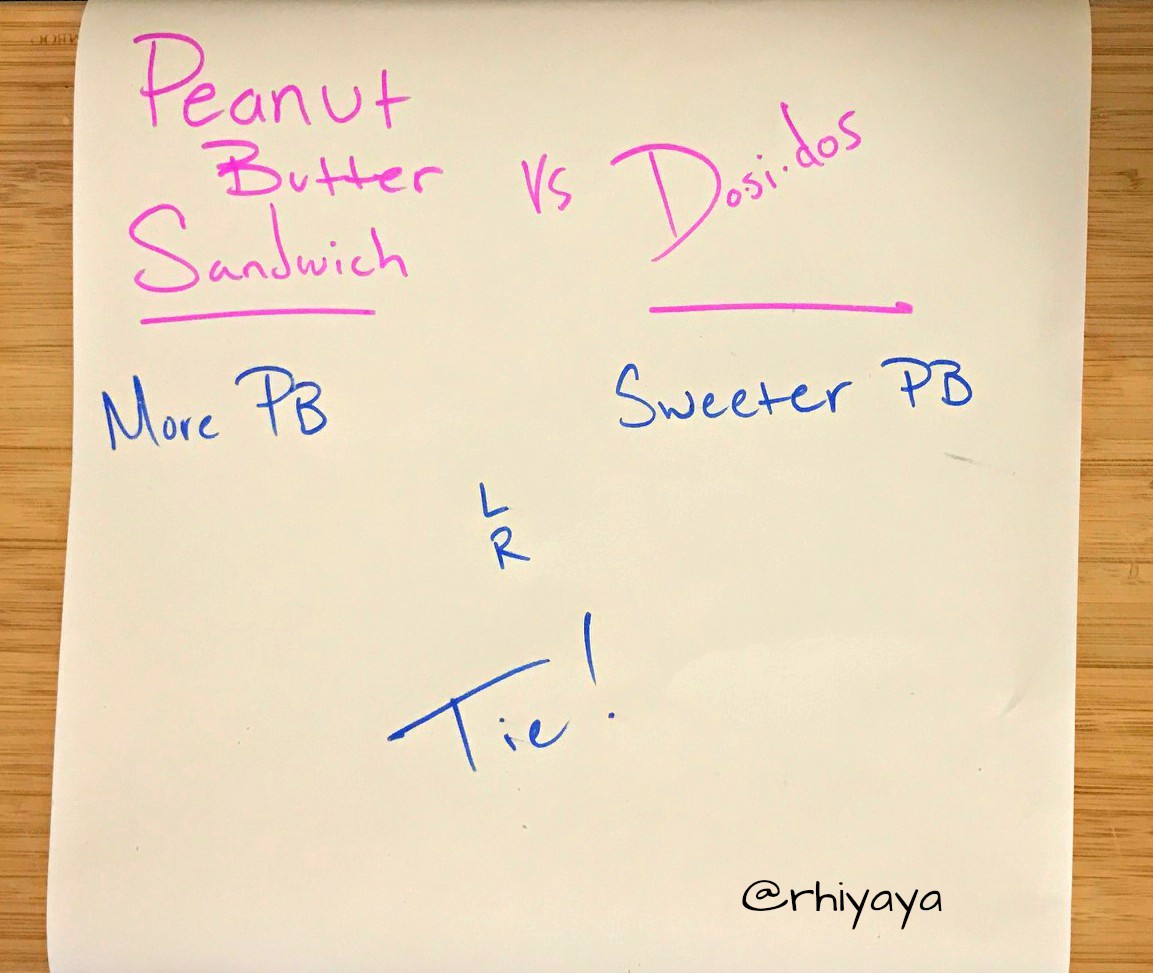 Peanut
Butter
Sandwich
vs
Dosi.dos
More PB
Sweeter PB
L
R
Tie!
@rhiyaya